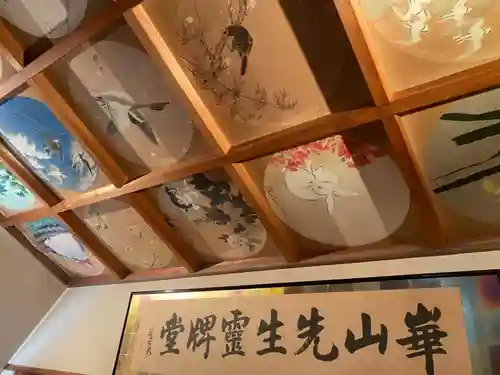 崋山先生靈牌堂